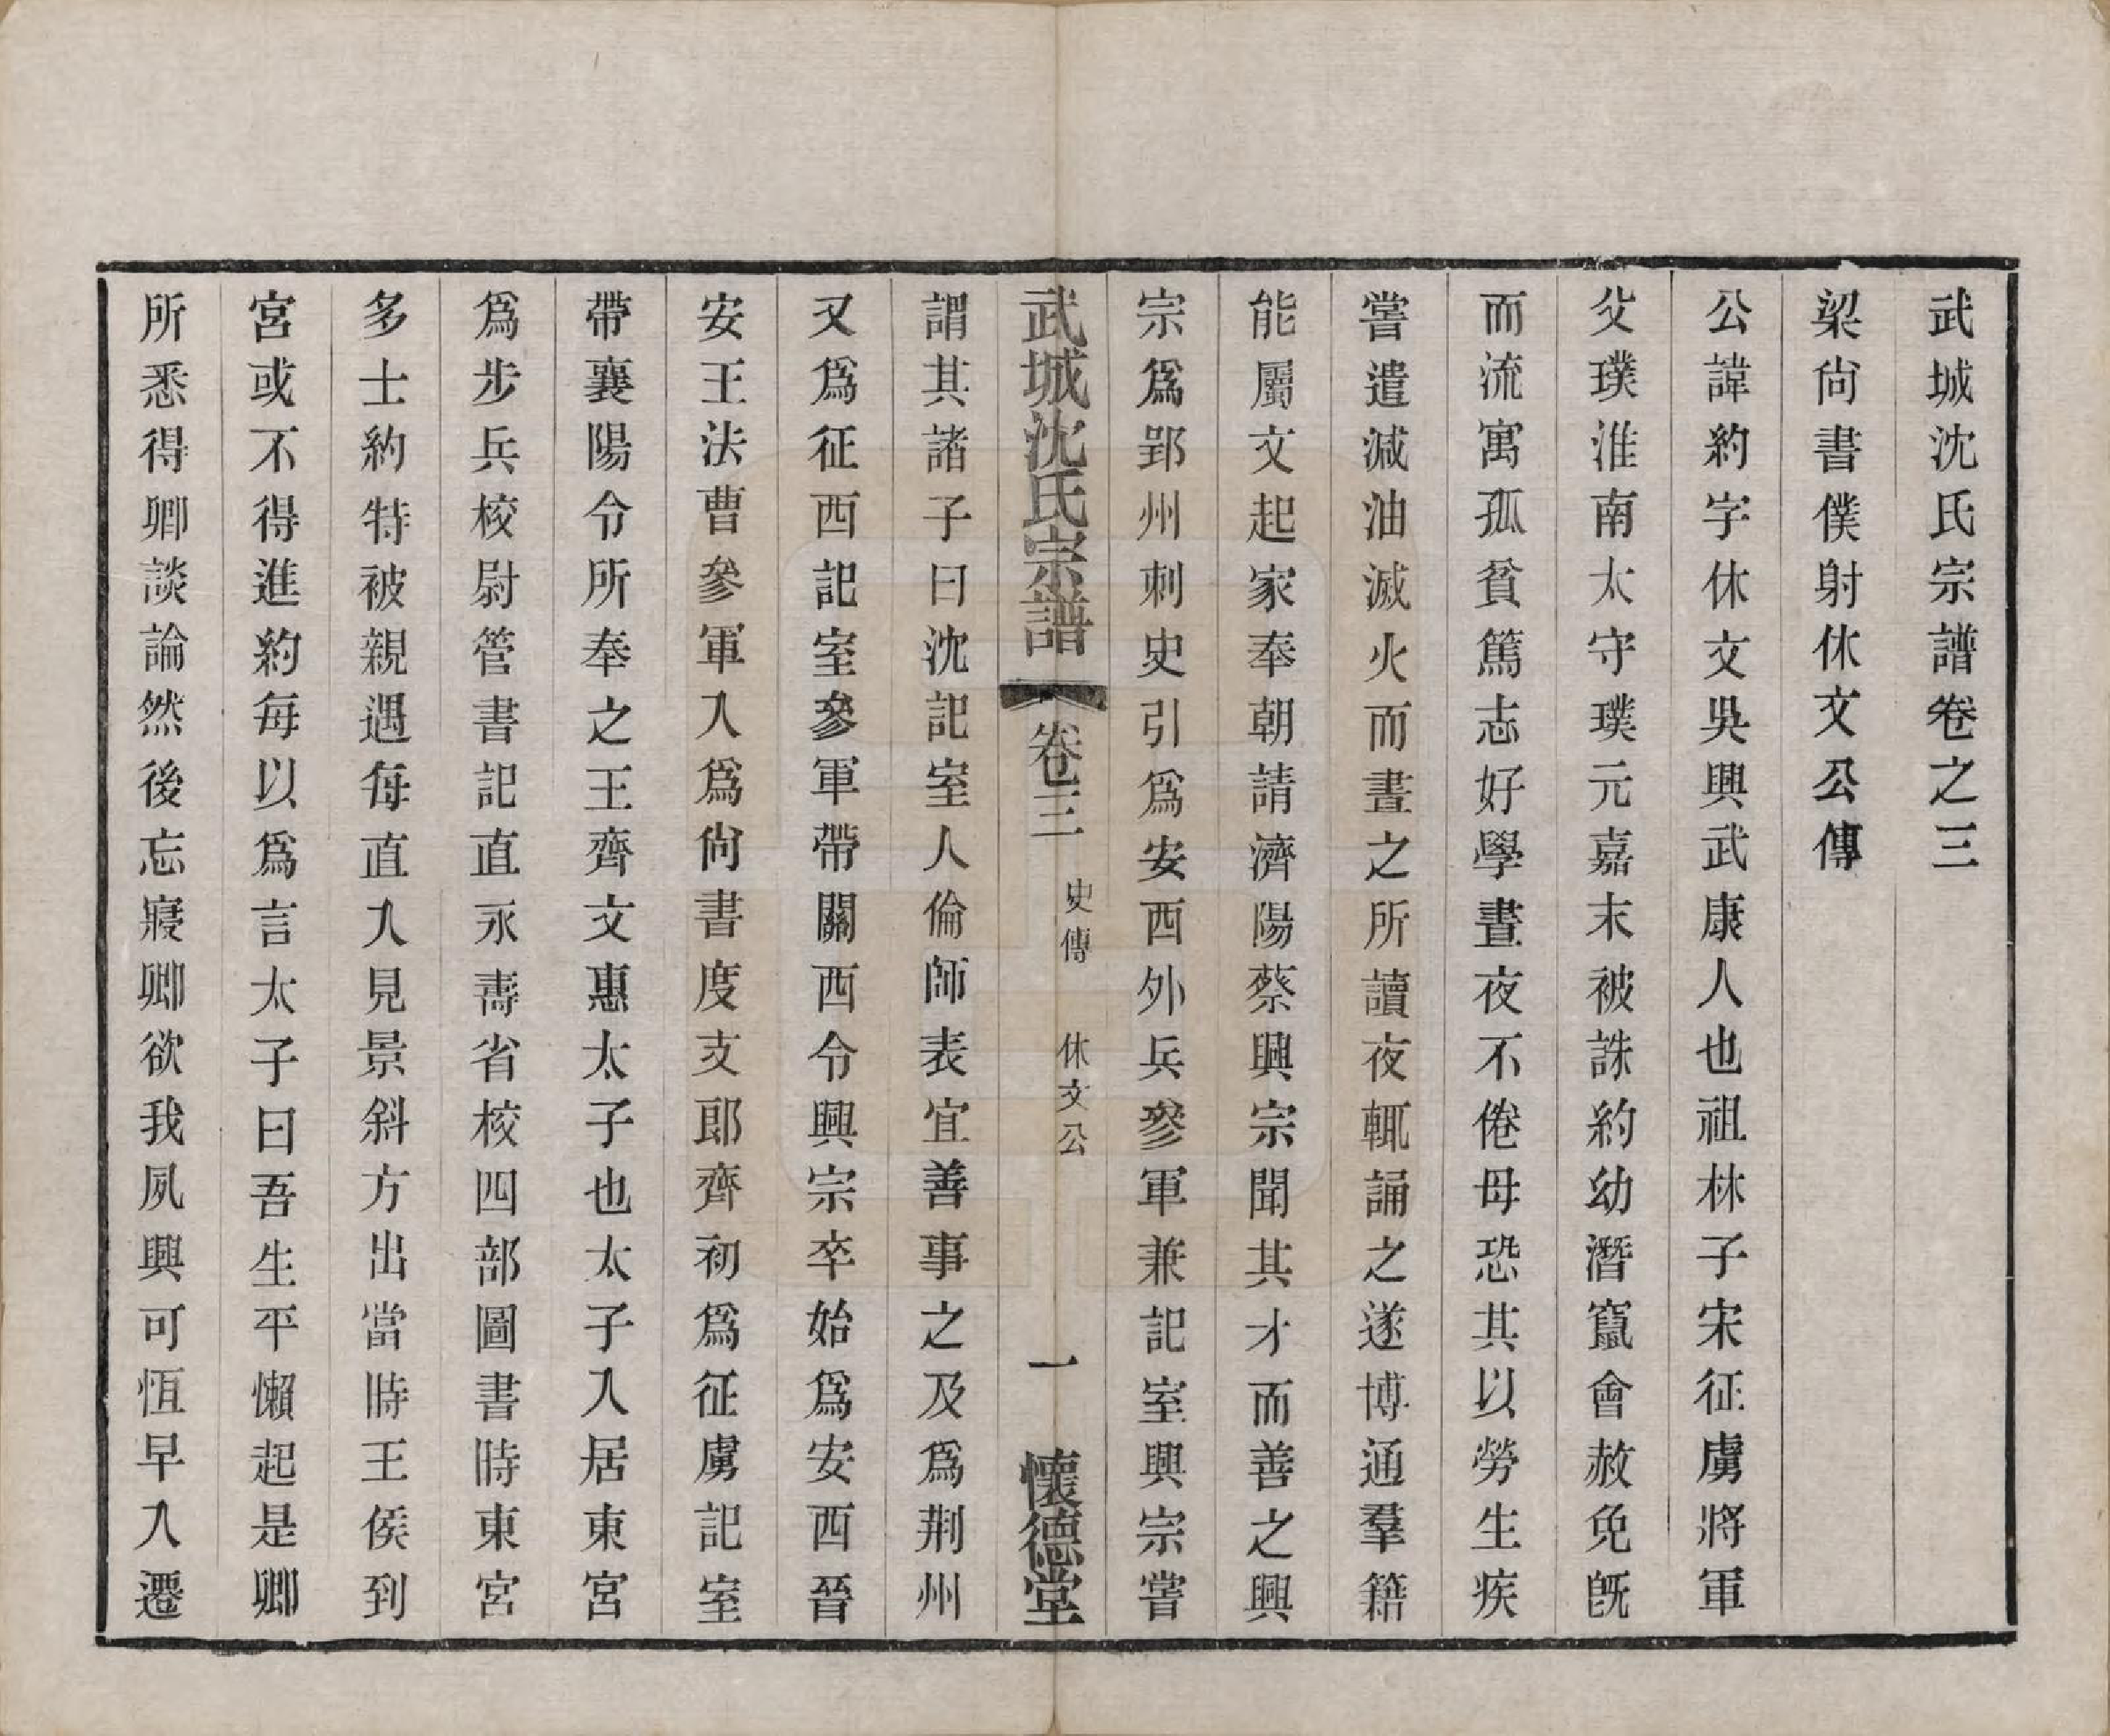 武城沈氏宗譜卷之三
梁尙書僕射休文公傳
公諱約字休文吳興武康人也祖林子宋征虜將軍
父璞淮南太守璞元嘉末被誅約幼潛竄會赦免旣
而流寓孤貧篤志好學晝夜不倦母恐其以勞生疾
嘗遣減油滅火而晝之所讀夜輒誦之遂博通羣籍
能屬文起家奉朝請濟陽蔡興宗聞其才而善之興
宗爲郢州刺史引爲安西外兵參軍兼記室興宗嘗
武城沈氏宗譜 卷三 史傳 休文公 一 懷德堂
謂其諸子曰沈記室人倫師表宜善事之及爲荆州
又爲征西記室參軍帶關西令興宗卒始爲安西晉
安王法曹參軍入爲尙書度支郎齊初爲征虜記室
帶襄陽令所奉之王齊文惠太子也太子入居東宮
爲步兵校尉管書記直永壽省校四部圖書時東宮
多士約特被親遇每直入見景斜方出當時王侯到
宮或不得進約每以爲言太子曰吾生平懶起是卿
所悉得卿談論然後忘寢卿欲我夙興可恆早入遷